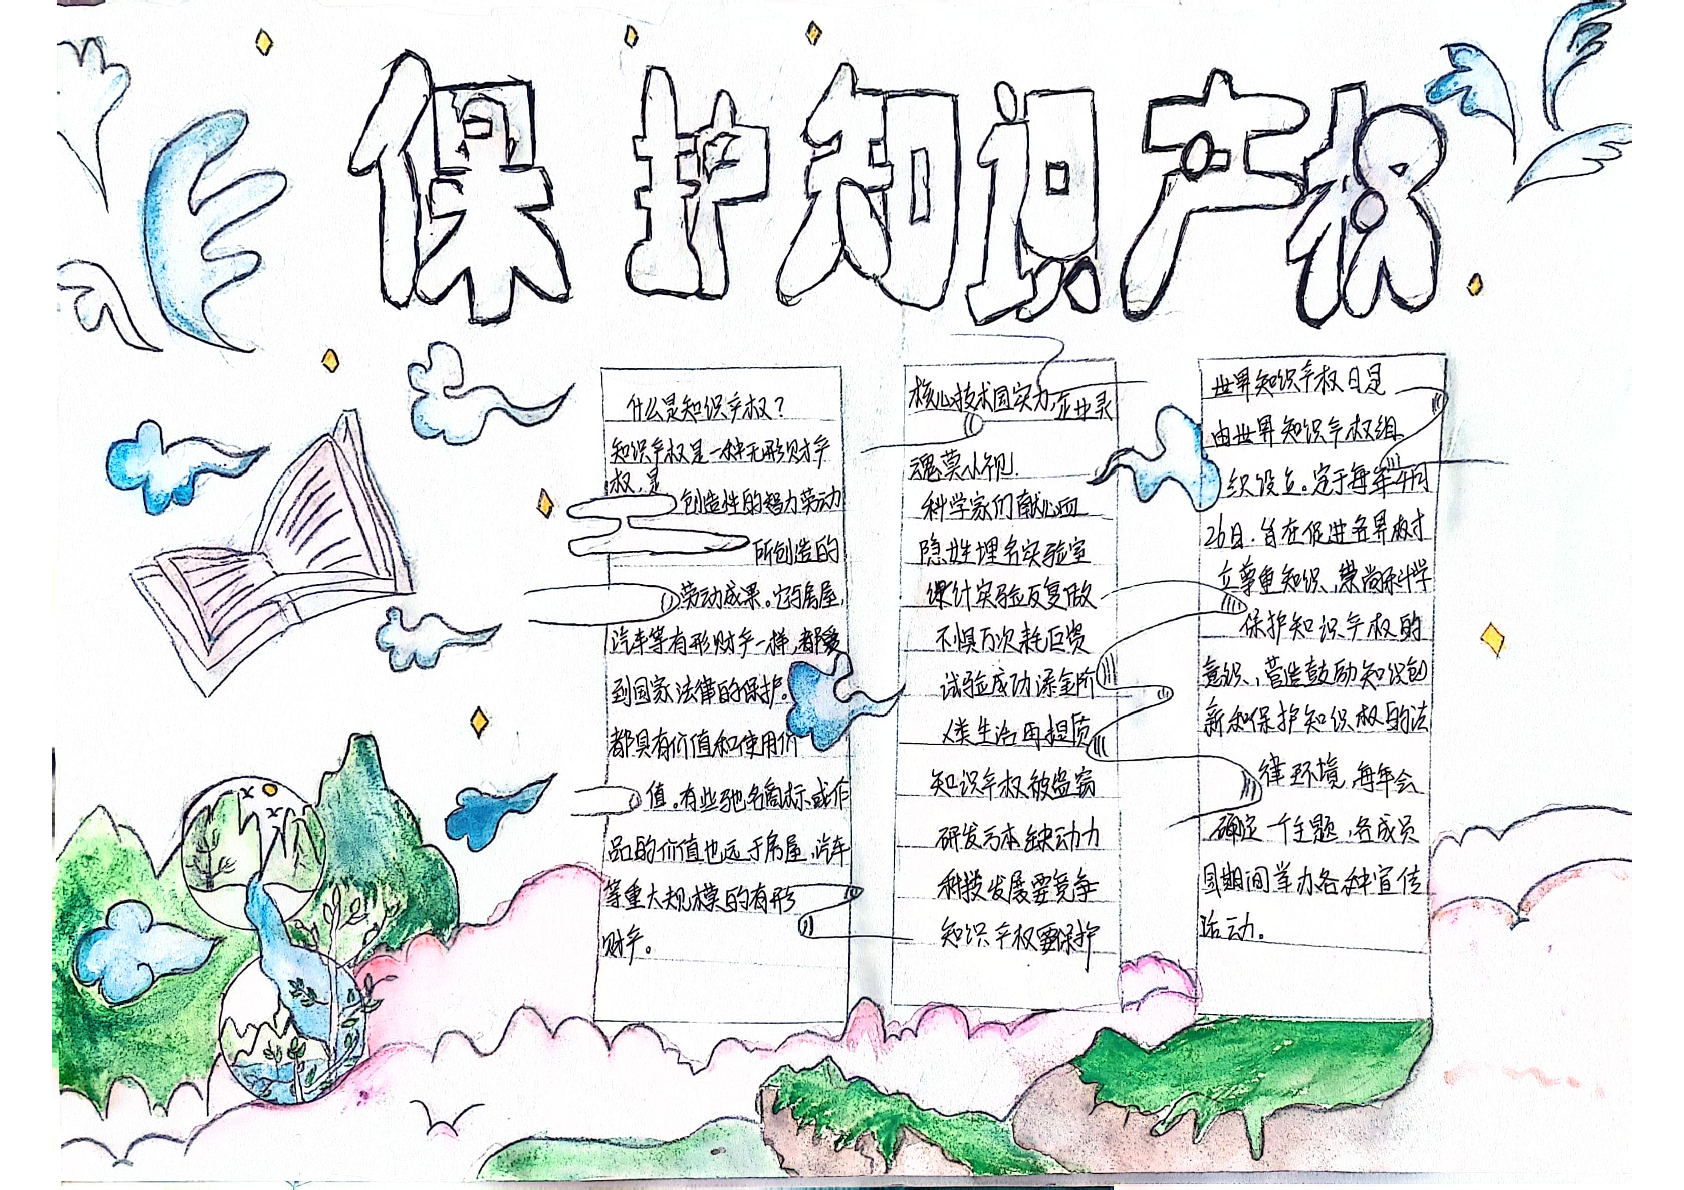 保护知识产权
什么是知识产权？
知识产权是一种无形财产
权，是
创造性的智力劳动
所创造的
劳动成果。它与房屋，
汽车等有形财产一样，都受
到国家法律的保护。
都具有价值和使用价
值。有些驰名商标、或作
品的价值也远于房屋，汽车
等重大规模的有形
财产。
核心技术国实力，企业灵
魂莫小视！
科学家们献心血
隐姓埋名实验室
课计实验反复做
不惧万次耗巨资
试验成功添金阶
人类生活再提质
知识产权被盗窃
研发亏本缺动力
科技发展要竞争
知识产权要保护
世界知识产权日是
由世界知识产权组
织设立。定于每年4月
26日，旨在促进各界树
立尊重知识、崇尚科学
保护知识产权的
意识，营造鼓励知识创
新和保护知识权的法
律环境，每年会
确定一个主题，各成员
国期间举办各种宣传
活动。